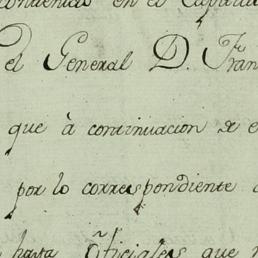 en el
el General D. Fran
que à continuacion se e
por lo correspondiente
hasta Oficiales que